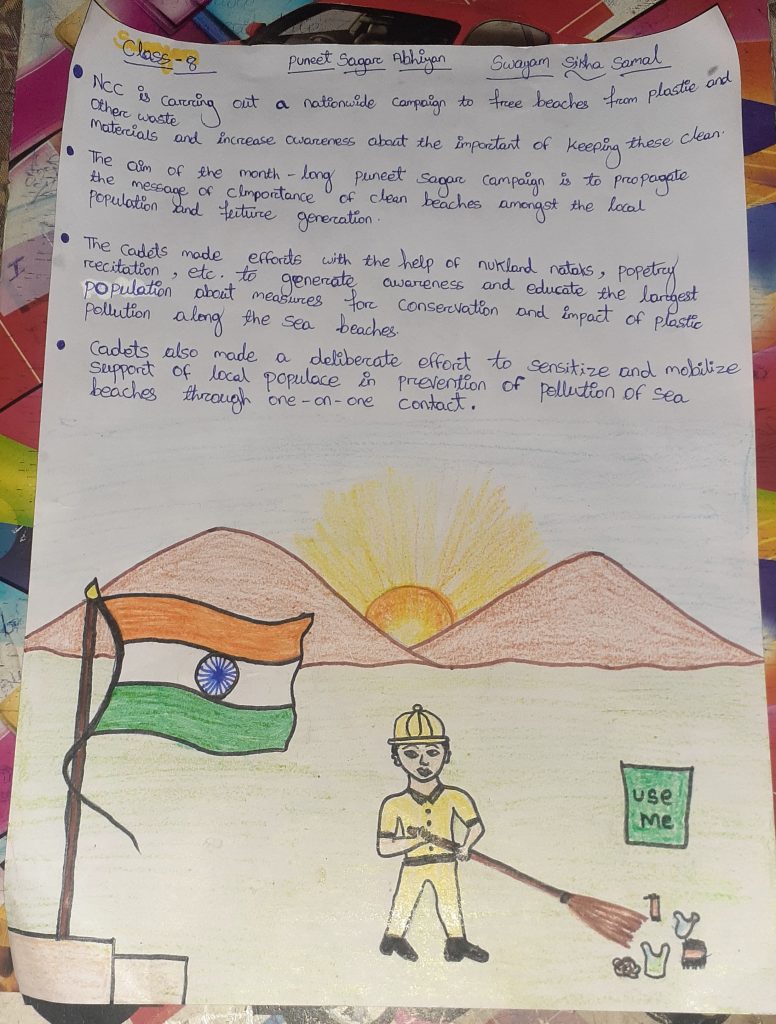 Class - 8 Puneet Sagar Abhiyan Swagam Sikha Samal
• NCC is carring out a nationwide campaign to free beaches from plastic and
other waste
materials and increase awareness about the important of keeping these clean.
• The aim of the month - long puneet sagar campaign is to propagate
the message of clmportance of clean beaches amongst the local
population and feuture generation.
• The cadets made efforts with the help of nukland nataks, popetry
recitation, etc. to generate awareness and educate the largest
population about measures for conservation and impact of plastic
pollution along the sea beaches.
• Cadets also made a deliberate effort to sensitize and mobilize
support of local populace in prevention of pollution of sea
beaches through one-on-one contact.
use
me